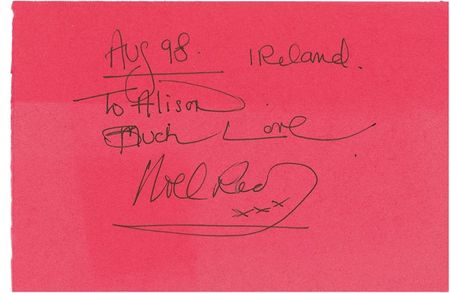 Aug 98. Ireland.
To Alison
Much Love
Noel Red
xxx